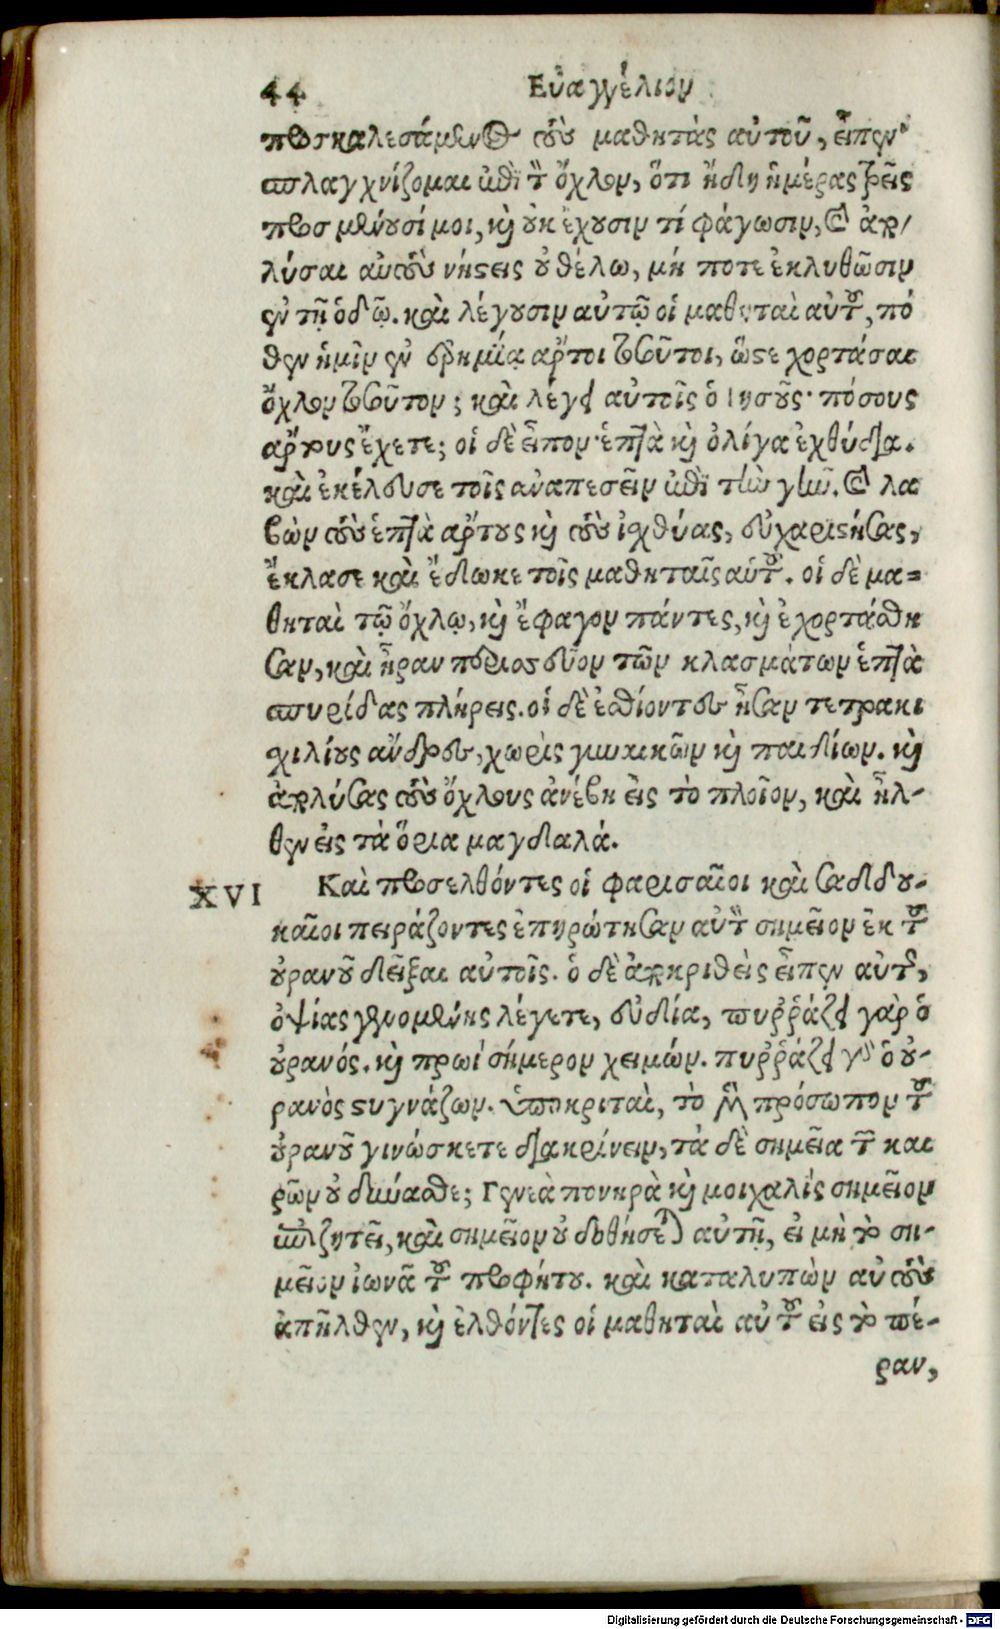 44 Εὐαγγέλιον
προσκαλεσάμενος τοὺς μαθητὰς αὐτοῦ, εἶπεν·
σπλαγχνίζομαι ἐπὶ τὸν ὄχλον, ὅτι ἤδη ἡμέρας τρεῖς
προσμένουσί μοι, καὶ οὐκ ἔχουσιν τί φάγωσιν, καὶ ἀπο/
λύσαι αὐτοὺς νήστεις οὐ θέλω, μή ποτε ἐκλυθῶσιν
ἐν τῇ ὁδῷ. καὶ λέγουσιν αὐτῷ οἱ μαθηταὶ αὐτοῦ, πό
θεν ἡμῖν ἐν ἐρημίᾳ ἄρτοι τοσοῦτοι, ὥστε χορτάσαι
ὄχλον τοσοῦτον; καὶ λέγει αὐτοῖς ὁ Ιησοῦς· πόσους
ἄρτους ἔχετε; οἱ δὲ εἶπον· ἑπτὰ καὶ ὀλίγα ἰχθύδια.
καὶ ἐκέλευσε τοῖς ἀναπεσεῖν ἐπὶ τὴν γῆν. καὶ λα
βὼν τοὺς ἑπτὰ ἄρτους καὶ τοὺς ἰχθύας, εὐχαριστήσας,
ἔκλασε καὶ ἔδωκε τοῖς μαθηταῖς αὑτοῦ. οἱ δὲ μα=
θηταὶ τῷ ὄχλῳ, καὶ ἔφαγον πάντες, καὶ ἐχορτάσθη
σαν, καὶ ἦραν περιοσσεῦον τῶν κλασμάτων ἑπτὰ
σπυρίδας πλήρεις. οἱ δὲ ἐσθίοντες ἦσαν τετρακι
χιλίους ἄνδρες, χωρὶς γυναικῶν καὶ παιδίων. καὶ
ἀπολύσας τοὺς ὄχλους ἀνέβη εἰς τὸ πλοῖον, καὶ ἦλ-
θεν εἰς τὰ ὅρια μαγδαλά.
XVI Καὶ προσελθόντες οἱ φαρισαῖοι καὶ σαδδου-
καῖοι πειράζοντες ἐπηρώτησαν αὐτὸν σημεῖον ἐκ τοῦ
οὐρανοῦ δεῖξαι αὐτοῖς. ὁ δὲ ἀποκριθεὶς εἶπεν αὐτοῖς,
ὀψίας γενομένης λέγετε, εὐδία, πυῤῥάζει γὰρ ὁ
οὐρανός. καὶ πρωὶ σήμερον χειμών. πυῤῥάζει γὰρ ὁ οὐ-
ρανὸς στυγνάζων. ὑποκριταὶ, τὸ μὲν πρόσωπον τοῦ
οὐρανοῦ γινώσκετε διακρίνειν, τὰ δὲ σημεῖα τῶν και
ρῶν οὐ δύνασθε; Γενεὰ πονηρὰ καὶ μοιχαλίς σημεῖον
ἐπιζητεῖ, καὶ σημεῖον οὐ δοθήσεται αὐτῇ, εἰ μὴ τὸ ση-
μεῖον ἰωνᾶ τοῦ προφήτου. καὶ καταλιπὼν αὐτοὺς
ἀπῆλθεν, καὶ ἐλθόντες οἱ μαθηταὶ αὐτοῦ εἰς τὸ πέ-
ραν,
Digitalisierung gefördert durch die Deutsche Forschungsgemeinschaft - DFG